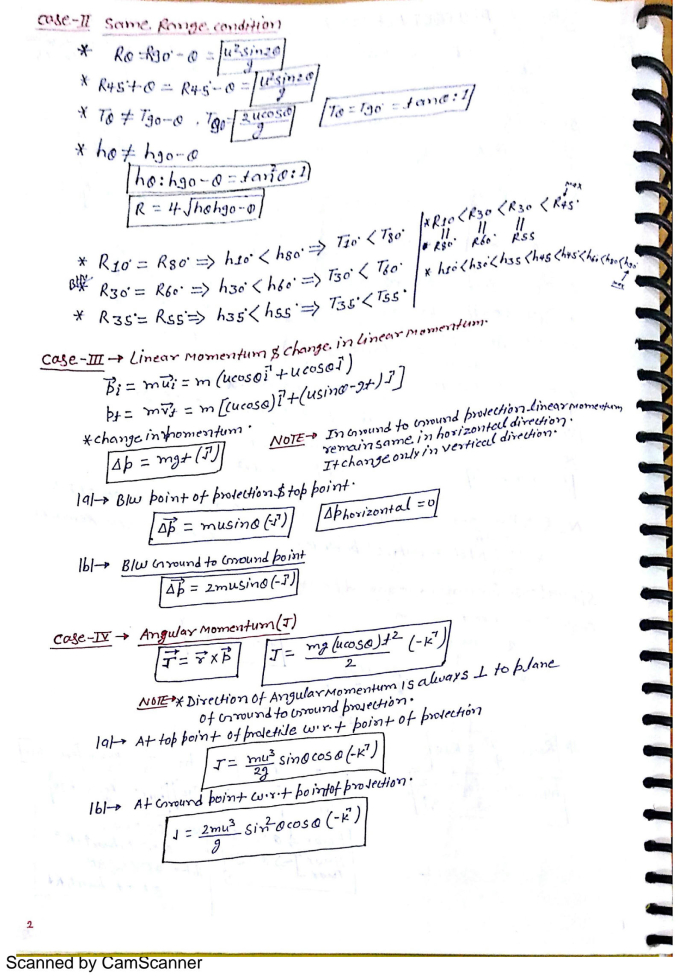 Case-II Same Range condition
* Rθ = R90°-θ = u²sin2θ/g
* R45°+θ = R45°-θ = u²sin2θ/g
* Tθ ≠ T90-θ . T90 = 2ucosθ/g Tθ = T90° = tanθ:1
* hθ ≠ h90-θ
hθ : h90-θ = tan²θ:1
R = 4√hθh90-θ
* R10° = R80° ⇒ h10° < h80° ⇒ T10° < T80°
* R30° = R60° ⇒ h30° < h60° ⇒ T30° < T60°
* R35° = R55° ⇒ h35° < h55° ⇒ T35° < T55°
max
* R10 < R30 < R30 < R45°
|| || ||
R80° R60° R55
* h10° < h30° < h35 < h45 < h45°
Case-III → Linear Momentum & change in Linear Momentum.
P⃗i = mu⃗i = m (ucosθi⃗ + ucosθJ⃗)
Pt = mv⃗t = m [(ucosθ)i⃗ + (usinθ-gt)J⃗]
* change in momentum.
Δp = mgt (J⃗)
NOTE → In Ground to Ground projection linear momentum
remain same in horizontal direction.
It change only in vertical direction.
|a|→ B/w point of projection & top point.
Δp⃗ = musinθ(-J⃗) Δp horizontal = 0
|b|→ B/w Ground to Ground point
Δp⃗ = 2musinθ(-J⃗)
Case-IV → Angular Momentum (J)
J⃗ = r⃗ x P⃗ J = mg(ucosθ)t²/2 (-k⃗)
NOTE → * Direction of Angular Momentum is always ⊥ to plane
of Ground to Ground projection.
|a|→ At top point of projetile w.r.t point of projection
J = mu³/2g sinθcosθ(-k⃗)
|b|→ At Ground point w.r.t point of projection.
J = 2mu³/g sin²θcosθ(-k⃗)
2
Scanned by CamScanner